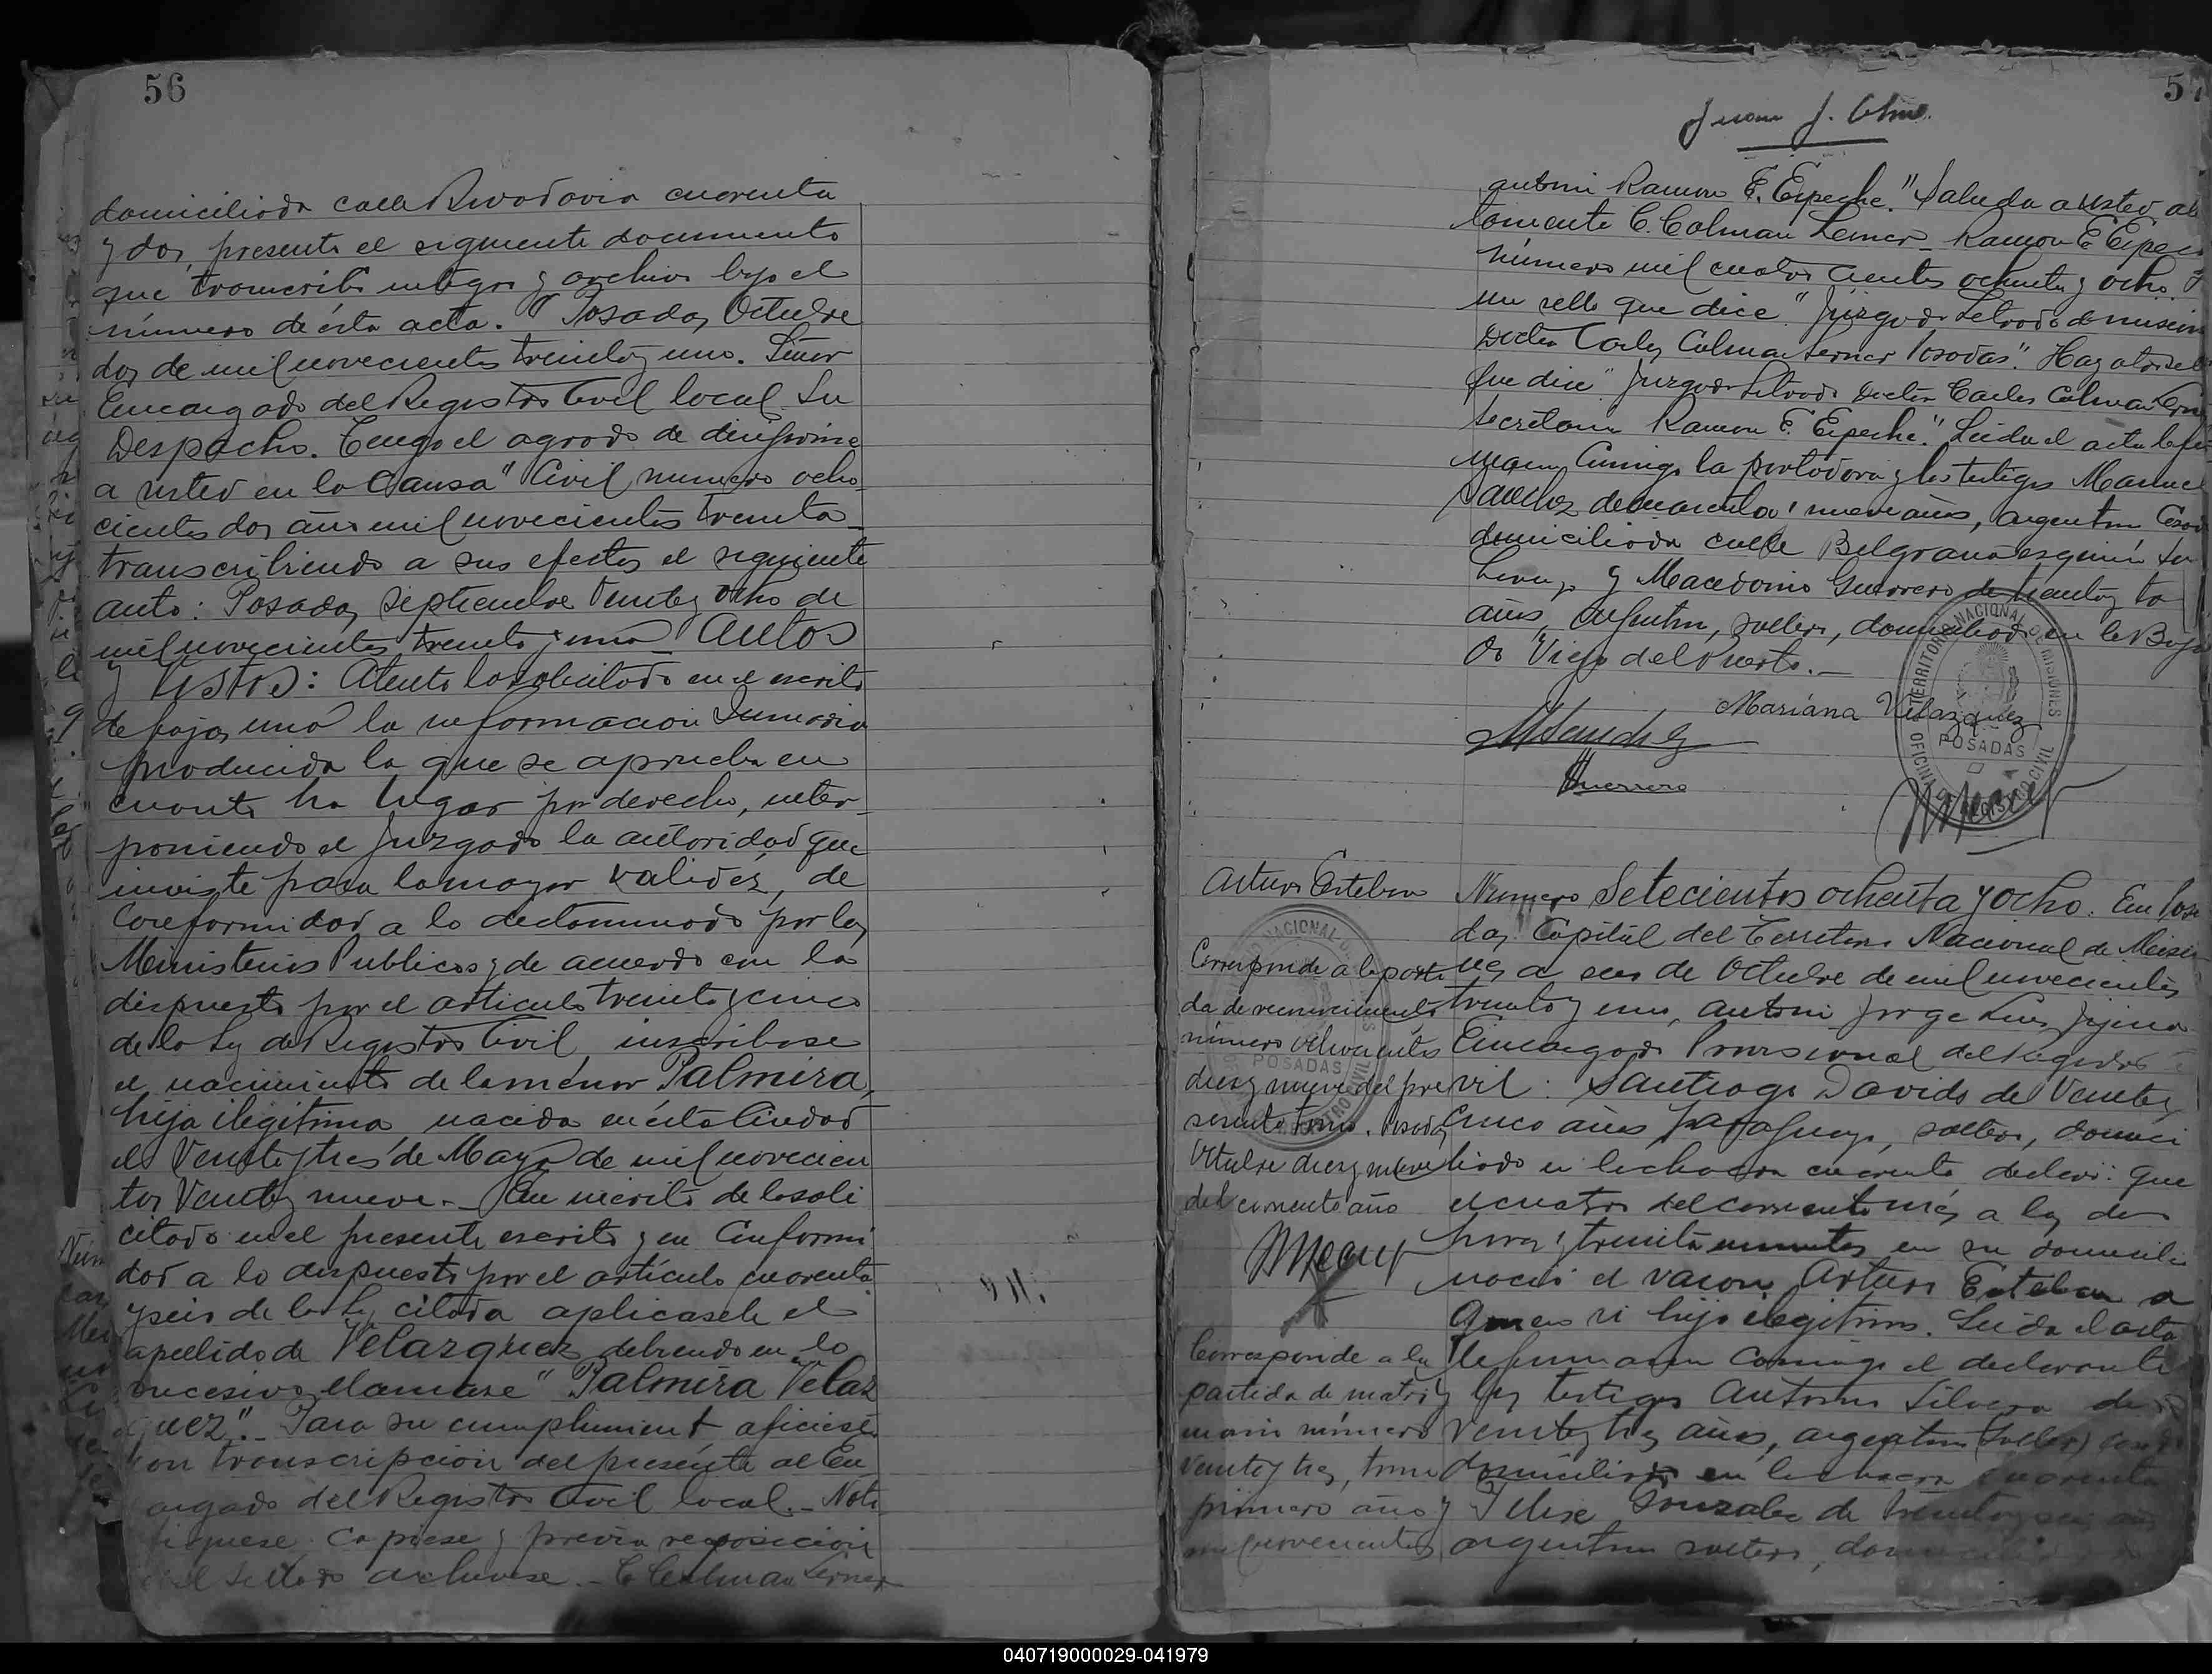 56
domiciliada calle Rivadavia cuarenta
y dos, presenta el siguiente documento
que transcribi integro y archivo bajo el
número de ésta acta. "Posadas, Octubre
dos de mil novecientos treinta y uno. Señor
Encargado del Registro Civil local. Su
Despacho. Tengo el agrado de dirijirme
a usted en la Causa "Civil numero ocho
cientos dos año mil novecientos treinta
transcribiendo a sus efectos el siguiente
auto: Posadas, Septiembre Veinte y ocho de
mil novecientos treinta y uno. Autos
y Vistos: Atento lo solicitado en el escrito
de fojas uno la informacion Sumaria
producida la que se aprueba en
cuanto ha lugar por derecho, inter
poniendo el Juzgado la autoridad que
inviste para la mayor validéz, de
Conformidad a lo dictaminado por los
Ministerios Publicos y de acuerdo con lo
dispuesto por el articulo treinta y cinco
de la Ley de Registro Civil, inscribase
el nacimiento de la menor Palmira,
hija ilegitima nacida en ésta Ciudad
el Veinte y tres de Mayo de mil novecien
tos Veinte y nueve. En mérito de lo soli
citado en el presente escrito y en Conformi
dad a lo dispuesto por el artículo cuarenta
y seis de la Ley citada aplicasele el
apellido de Velazquez debiendo en lo
sucesivo llamarse "Palmira Velaz
quez". Para su cumplimiento oficiese
con transcripcion del presente al En
cargado del Registro Civil local. Noti
fiquese. Copiese y previa reposicion
del Sellado archivese. C. Colman Lerner
57
Juan J.
autmi Ramon E. Espeche." Saluda a usted, a
tamente C. Colman Lerner. Ramon E. Espe
número mil cuatro cientos ochenta y ocho.
un sello que dice "Juzgado Letrado de Mision
Doctor Carlos Colman Lerner Posadas". Hay otro sello
que dice "Juzgado Letrado Doctor Carlos Colman Lern
Secretaria Ramon E. Espeche". Leida el acta la fir
maron Conmigo la portadora y los testigos Manuel
Sanchez de cuarenta y nueve años, argentino Casad
domiciliado calle Belgrano esquina
y Macedonio Guerrero de treinta y
años, argentino, soltero, domiciliado en el Baja
do Viejo del Puerto.
Mariana Velazquez
MSanchez
Guerrero
TERRITORIO NACIONAL DE MISIONES
POSADAS
OFICINA REGISTRO CIVIL
Arturo Esteban
Numero Setecientos ochenta y ocho. En Posa
das Capital del Territorio Nacional de Mision
nes a seis de Octubre de mil novecientos
treinta y uno, antemi Jorge Luis
Encargado Provisional del Registro
vil: Santiago Davids de Veinte y
cinco años Paraguayo, soltero, domici
liado en la chacra cuarenta declaró: que
el cuatro del corriente mes a las dos
horas y treinta minutos en su domicilio
nació el varon Arturo Esteban a
quien si hijo ilegitimo. Leida el acta
la firmaron Conmigo el declarante
y los testigos Antonio Silvera de
Veinte y tres años, argentino (Soltero)
domiciliado en la chacra cuarenta
y Felix Gonzalez de treinta y seis
argentino soltero,
Corresponde a la parti
da de reconocimiento
número ochocientos
diez y nueve del pre
sente tomo. Posadas,
Octubre diez y nueve
del corriente año
Corresponde a la
partida de matri
monio número
Veinte y tres, tomo
primero año
mil novecientos
040719000029-041979